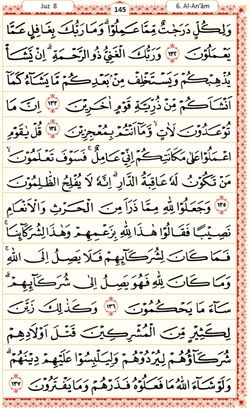 Juz 8 145 6. Al-An'ām
وَلِكُلٍّ دَرَجٰتٌ مِّمَّا عَمِلُوْا ۗوَمَا رَبُّكَ بِغَافِلٍ عَمَّا
يَعْمَلُوْنَ ﴿١٣٢﴾ وَرَبُّكَ الْغَنِيُّ ذُو الرَّحْمَةِ ۗاِنْ يَّشَأْ
يُذْهِبْكُمْ وَيَسْتَخْلِفْ مِنْۢ بَعْدِكُمْ مَّا يَشَاۤءُ كَمَآ
اَنْشَاَكُمْ مِّنْ ذُرِّيَّةِ قَوْمٍ اٰخَرِيْنَ ﴿١٣٣﴾ اِنَّ مَا
تُوْعَدُوْنَ لَاٰتٍۙ وَّمَآ اَنْتُمْ بِمُعْجِزِيْنَ ﴿١٣٤﴾ قُلْ يٰقَوْمِ
اعْمَلُوْا عَلٰى مَكَانَتِكُمْ اِنِّيْ عَامِلٌۚ فَسَوْفَ تَعْلَمُوْنَۙ
مَنْ تَكُوْنُ لَهٗ عَاقِبَةُ الدَّارِۗ اِنَّهٗ لَا يُفْلِحُ الظّٰلِمُوْنَ
﴿١٣٥﴾ وَجَعَلُوْا لِلّٰهِ مِمَّا ذَرَاَ مِنَ الْحَرْثِ وَالْاَنْعَامِ
نَصِيْبًا فَقَالُوْا هٰذَا لِلّٰهِ بِزَعْمِهِمْ وَهٰذَا لِشُرَكَاۤىِٕنَاۚ
فَمَا كَانَ لِشُرَكَاۤىِٕهِمْ فَلَا يَصِلُ اِلَى اللّٰهِ ۚ
وَمَا كَانَ لِلّٰهِ فَهُوَ يَصِلُ اِلٰى شُرَكَاۤىِٕهِمْۗ
سَاۤءَ مَا يَحْكُمُوْنَ ﴿١٣٦﴾ وَكَذٰلِكَ زَيَّنَ
لِكَثِيْرٍ مِّنَ الْمُشْرِكِيْنَ قَتْلَ اَوْلَادِهِمْ
شُرَكَاۤؤُهُمْ لِيُرْدُوْهُمْ وَلِيَلْبِسُوْا عَلَيْهِمْ دِيْنَهُمْۗ
وَلَوْ شَاۤءَ اللّٰهُ مَا فَعَلُوْهُ فَذَرْهُمْ وَمَا يَفْتَرُوْنَ ﴿١٣٧﴾